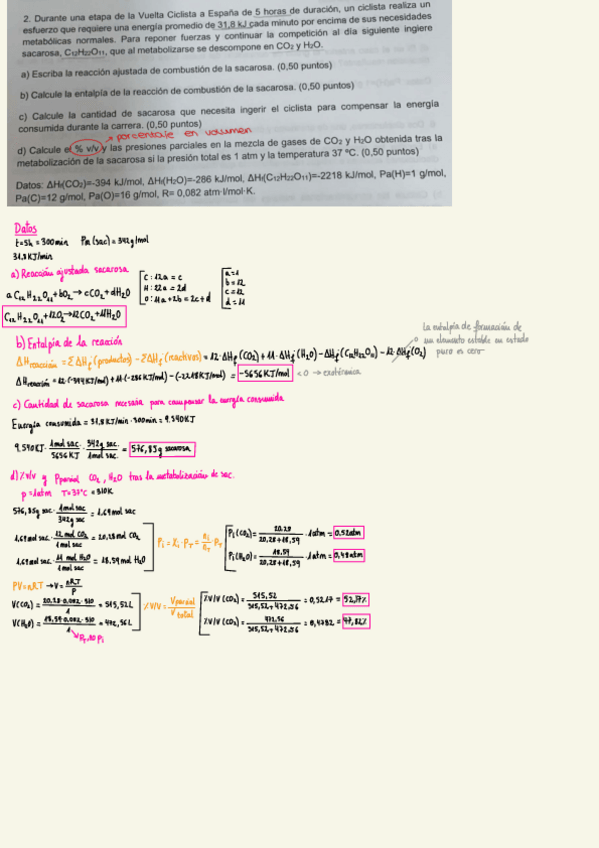 2. Durante una etapa de la Vuelta Ciclista a España de 5 horas de duración, un ciclista realiza un
esfuerzo que requiere una energía promedio de 31,8 kJ cada minuto por encima de sus necesidades
metabólicas normales. Para reponer fuerzas y continuar la competición al día siguiente ingiere
sacarosa, C₁₂H₂₂O₁₁, que al metabolizarse se descompone en CO₂ y H₂O.
a) Escriba la reacción ajustada de combustión de la sacarosa. (0,50 puntos)
b) Calcule la entalpía de la reacción de combustión de la sacarosa. (0,50 puntos)
c) Calcule la cantidad de sacarosa que necesita ingerir el ciclista para compensar la energía
consumida durante la carrera. (0,50 puntos)
porcentaje en volumen
d) Calcule el % v/v y las presiones parciales en la mezcla de gases de CO₂ y H₂O obtenida tras la
metabolización de la sacarosa si la presión total es 1 atm y la temperatura 37 ºC. (0,50 puntos)
Datos: ΔHf(CO₂)=-394 kJ/mol, ΔHf(H₂O)=-286 kJ/mol, ΔHf(C₁₂H₂₂O₁₁)=-2218 kJ/mol, Pa(H)=1 g/mol,
Pa(C)=12 g/mol, Pa(O)=16 g/mol, R= 0,082 atm·l/mol·K.
Datos
t=5h = 300min Pm (sac) = 342g/mol
31,8 KJ/min
a) Reacción ajustada sacarosa
a C₁₂H₂₂O₁₁ + bO₂ → cCO₂ + dH₂O
C: 12a = c
H: 22a = 2d
O: 11a + 2b = 2c+d
a=1
b=12
c=12
d=11
C₁₂H₂₂O₁₁ + 12O₂ → 12CO₂ + 11H₂O
b) Entalpía de la reacción
La entalpía de formación de
un elemento estable en estado
puro es cero
ΔHreacción = ΣΔHf (productos) - ΣΔHf (reactivos) = 12·ΔHf (CO₂) + 11·ΔHf (H₂O) - ΔHf (C₁₂H₂₂O₁₁) - 12·ΔHf (O₂) 0
ΔHreacción = 12·(-394KJ/mol) + 11·(-286KJ/mol) - (-2218KJ/mol) = -5656KJ/mol < 0 → exotérmica
c) Cantidad de sacarosa necesaria para compensar la energía consumida
Energía consumida = 31,8 KJ/min · 300min = 9.540KJ
9.540KJ · 1mol sac. / 5656 KJ · 342g sac. / 1mol sac. = 576,85g sacarosa
d) %v/v y Pparcial CO₂, H₂O tras la metabolización de sac.
p = 1atm T = 37ºC = 310K
576,85g sac · 1mol sac / 342g sac = 1,69mol sac
1,69mol sac · 12 mol CO₂ / 1mol sac = 20,28 mol CO₂
1,69mol sac · 11 mol H₂O / 1mol sac = 18,59mol H₂O
Pi = Xi · PT = ni / nT · PT
Pi (CO₂) = 20,28 / 20,28+18,59 · 1atm = 0,52atm
Pi (H₂O) = 18,59 / 20,28+18,59 · 1atm = 0,48atm
PV=nRT → V = nRT / P
V(CO₂) = 20,28·0,082·310 / 1 = 515,52L
V(H₂O) = 18,59·0,082·310 / 1 = 472,56L
PT, no Pi
%V/V = Vparcial / V total
%V/V (CO₂) = 515,52 / 515,52+472,56 = 0,5217 = 52,17%
%V/V (H₂O) = 472,56 / 515,52+472,56 = 0,4782 = 47,82%